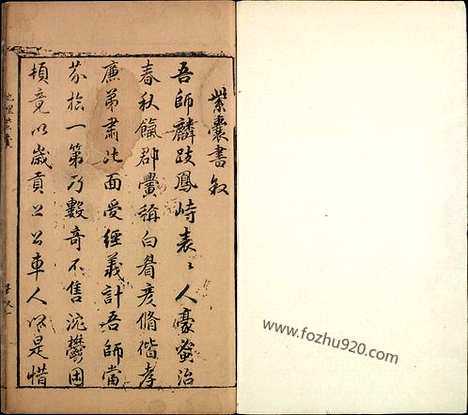 紫囊書叙
吾師麟趾鳳峙表〻人豪蚤治
春秋餼郡黌稱白眉彦脩偕孝
廉弟肅北面受經義計吾師當
芥拾一第乃數奇不售沱鬱困
頓竟以歲貢上公車人以是惜
www.fozhu920.com